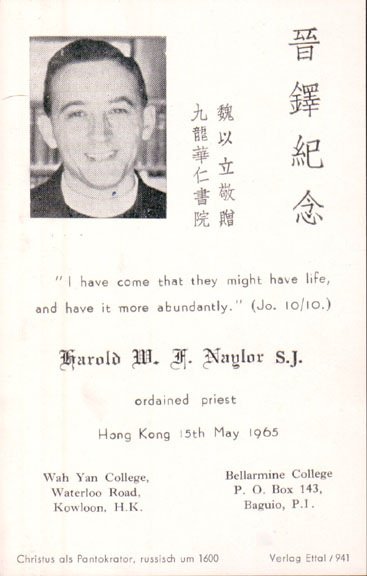 晉鐸紀念
魏以立敬贈
九龍華仁書院
" I have come that they might have life,
and have it more abundantly." (Jo. 10/10.)
Harold W. F. Naylor S.J.
ordained priest
Hong Kong 15th May 1965
Wah Yan College,
Waterloo Road,
Kowloon, H.K.
Bellarmine College
P. O. Box 143,
Baguio, P.I.
Christus als Pantokrator, russisch um 1600
Verlag Ettal / 941